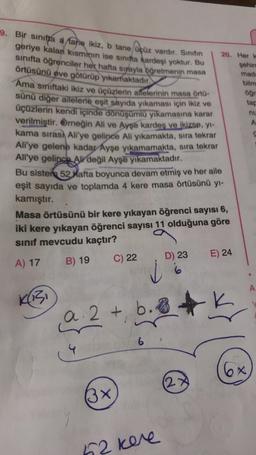 9. Bir sınıfta a tane ikiz, b tane üçüz vardır. Sınıfın
geriye kalan kısmının ise sınıfta kardeşi yoktur. Bu
sınıfta öğrenciler her hafta sırayla öğretmenin masa
örtüsünü eve götürüp yıkamaktadır.
Ama sınıftaki ikiz ve üçüzlerin ailelerinin masa örtü-
sünü diğer ailelerle eşit sayıda yıkaması için ikiz ve
üçüzlerin kendi içinde dönüşümlü yıkamasına karar
verilmiştir. Örneğin Ali ve Ayşe kardeş ve ikizse, yı-
kama sırası Ali'ye gelince Ali yıkamakta, sıra tekrar
Ali'ye gelene kadar Ayşe yıkamamakta, sıra tekrar
Ali'ye gelince Ali değil Ayşe yıkamaktadır.
Bu sistem 52 hafta boyunca devam etmiş ve her aile
eşit sayıda ve toplamda 4 kere masa örtüsünü yı-
kamıştır.
Masa örtüsünü bir kere yıkayan öğrenci sayısı 6,
iki kere yıkayan öğrenci sayısı 11 olduğuna göre
sınıf mevcudu kaçtır?
A) 17 B) 19 C) 22 D) 23 E) 24
6
kişi
a.2 + b.3 + k
4
6
3x
2x
6x
52 kere
20. Her